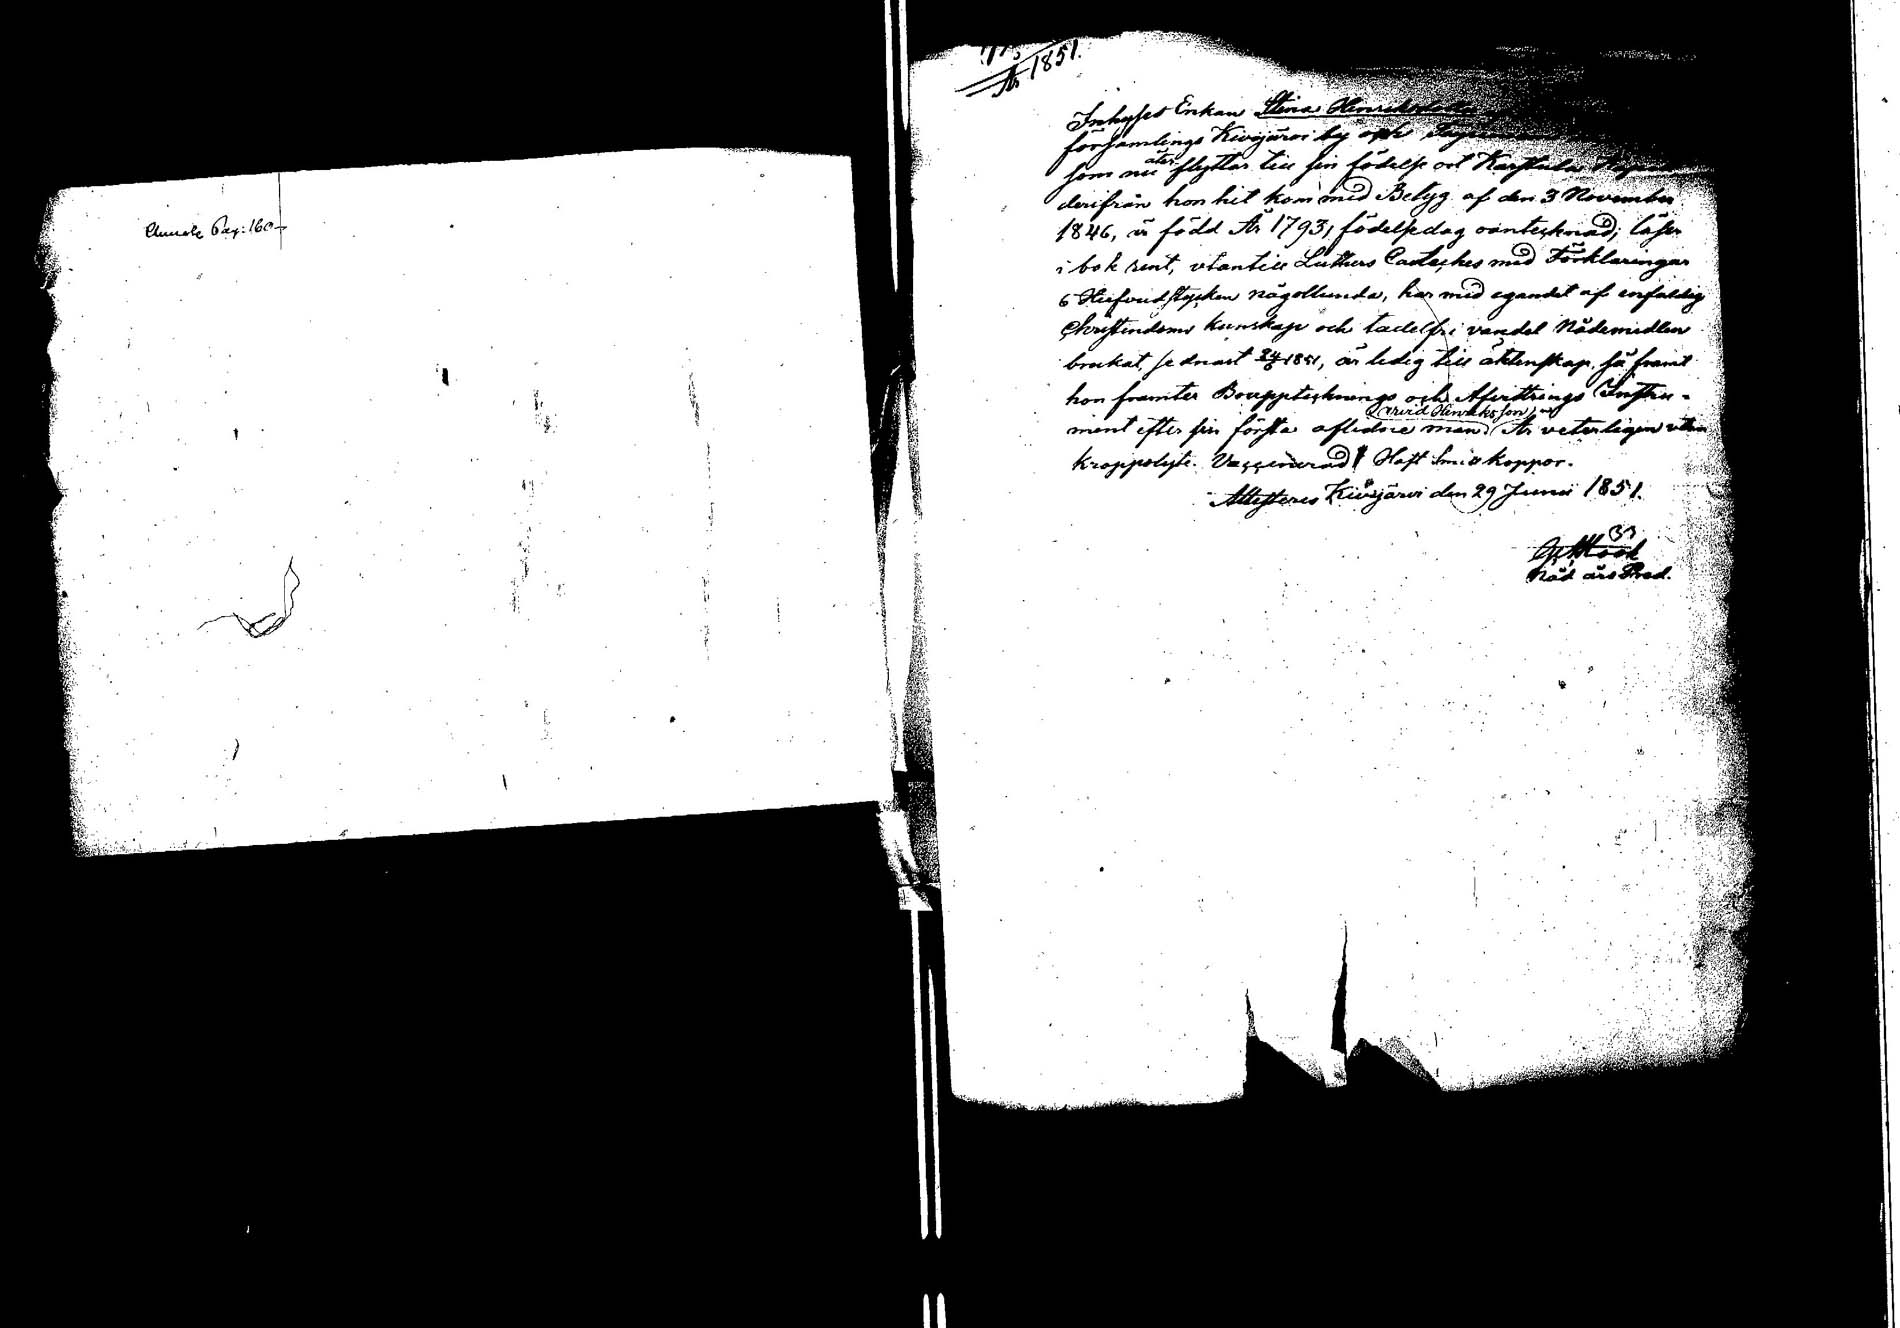 Pag: 160
År 1851.
Inhyses Enkan Stina Henriksdotter
församlings Kivijärvi by och
som nu åter flyttar till sin födelse ort Karstula
derifrån hon hit kom med Betyg af den 3 November
1846, är född År 1793, födelsedag oantecknad; läser
i bok rent, utantill Luthers Cateches med Förklaringar
6 Hufvudstycken någorlunda, har med egandet af enfaldig
Christendoms kunskap och tadelfri vandel Nådemedlen
brukat sednast 24/6 1851, är ledig till äktenskap så framt
hon framter Bouppteknings och Afvittrings Instru-
ment efter sin första aflidne man Arvid Henriksson, Är veterligen utan
kroppslyte. Vaccinerad Haft Smittkoppor.
Attesteres Kivijärvi den 29 Junii 1851.